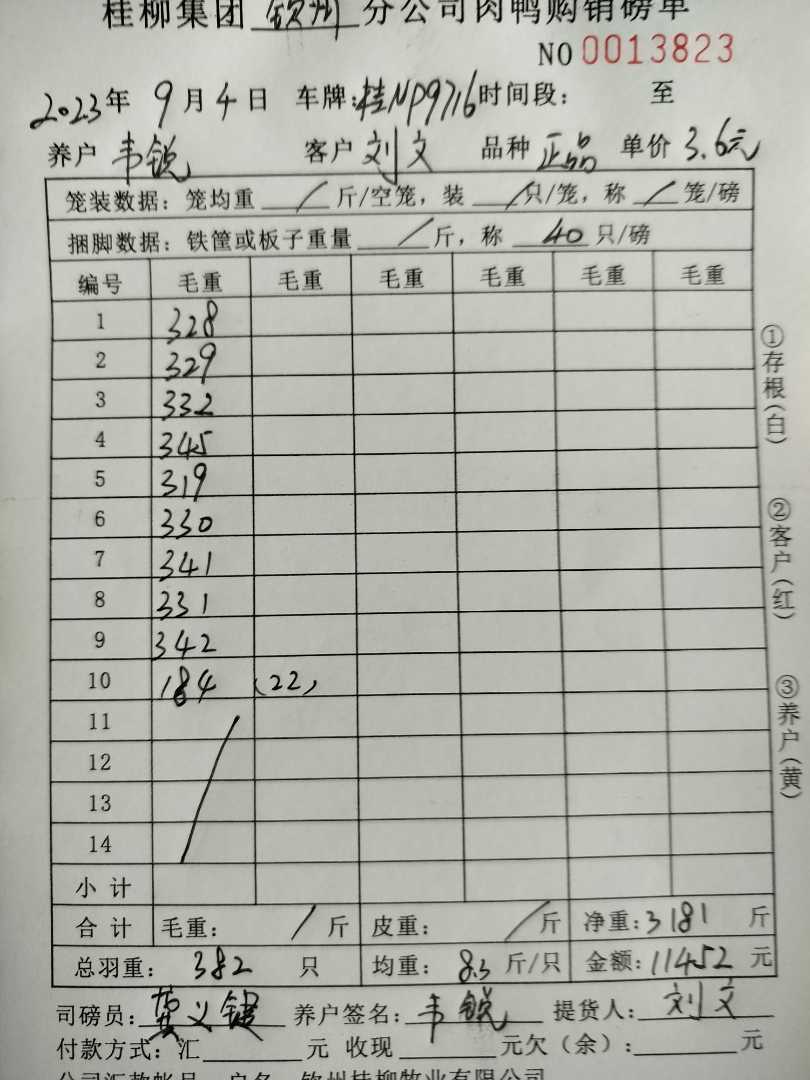 桂柳集团 钦州 分公司肉鸭购销磅单
NO 0013823
2023年 9月4日 车牌:桂NP9716 时间段: 至
养户 韦锐 客户 刘文 品种 正品 单价 3.6元
笼装数据: 笼均重 / 斤/空笼, 装 / 只/笼, 称 / 笼/磅
捆脚数据: 铁筐或板子重量 / 斤, 称 40 只/磅
编号 毛重 毛重 毛重 毛重 毛重 毛重
1 328
2 329
3 332
4 345
5 319
6 330
7 341
8 331
9 342
10 184 (22)
11
12
13
14
小计
合计 毛重: / 斤 皮重: / 斤 净重:3181 斤
总羽重: 382 只 均重: 8.3 斤/只 金额:11452 元
司磅员: 义 养户签名: 韦锐 提货人: 刘文
付款方式: 汇 元 收现 元欠(余): 元
公司汇款帐号 户名 钦州桂柳牧业有限公司
①存根(白)
②客户(红)
③养户(黄)